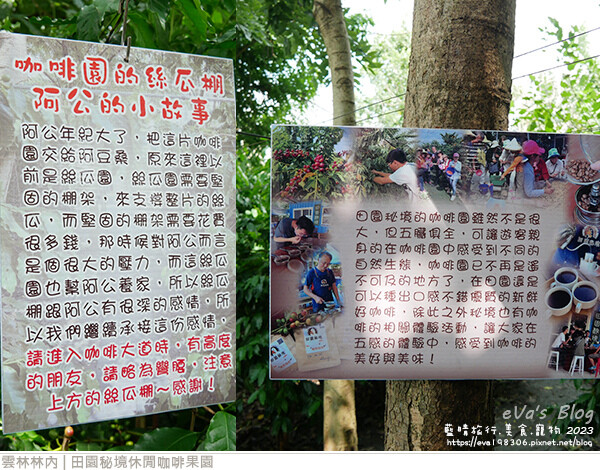 咖啡園的絲瓜棚
阿公的小故事
阿公年紀大了，把這片咖啡
園交給阿豆桑，原來這裡以
前是絲瓜園，絲瓜園需要堅
固的棚架，來支撐整片的絲
瓜，而堅固的棚架需要花費
很多錢，那時候對阿公而言
是個很大的壓力，而這絲瓜
園也幫阿公養家，所以絲瓜
棚跟阿公有很深的感情，所
以我們繼續承接這份感情，
請進入咖啡大道時，有高度
的朋友，請略為彎腰，注意
上方的絲瓜棚～感謝！
田園秘境的咖啡園雖然不是很
大，但五臟俱全，可讓遊客親
身的在咖啡園中感受到不同的
自然生態，咖啡園已不再是遙
不可及的地方了，在田園這是
可以種出口感不錯優質的新鮮
好咖啡，除此之外秘境也有咖
啡的相關體驗活動，讓大家在
五感的體驗中，感受到咖啡的
美好與美味！
eVa's Blog
藍晴旅行.美食.寵物 2023
https://eva198306.pixnet.net/blog
雲林林內 | 田園秘境休閒咖啡果園